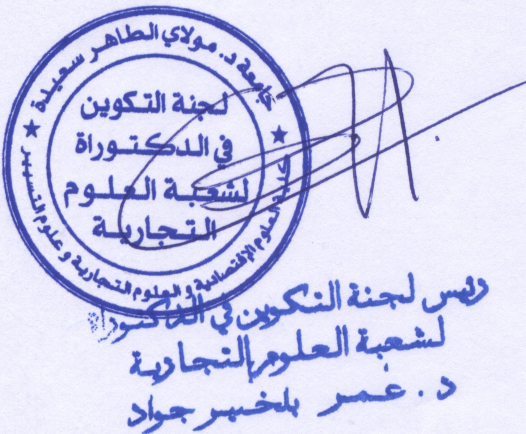 جامعة د. مولاي الطاهر سعيدة
كلية العلوم الإقتصادية و العلوم التجارية و علوم التسيير
لجنة التكوين
في الدكتوراة
لشعبة العلوم
التجارية
رئيس لجنة التكوين في الدكتوراة
لشعبة العلوم التجارية
د. عمر بلخير جواد